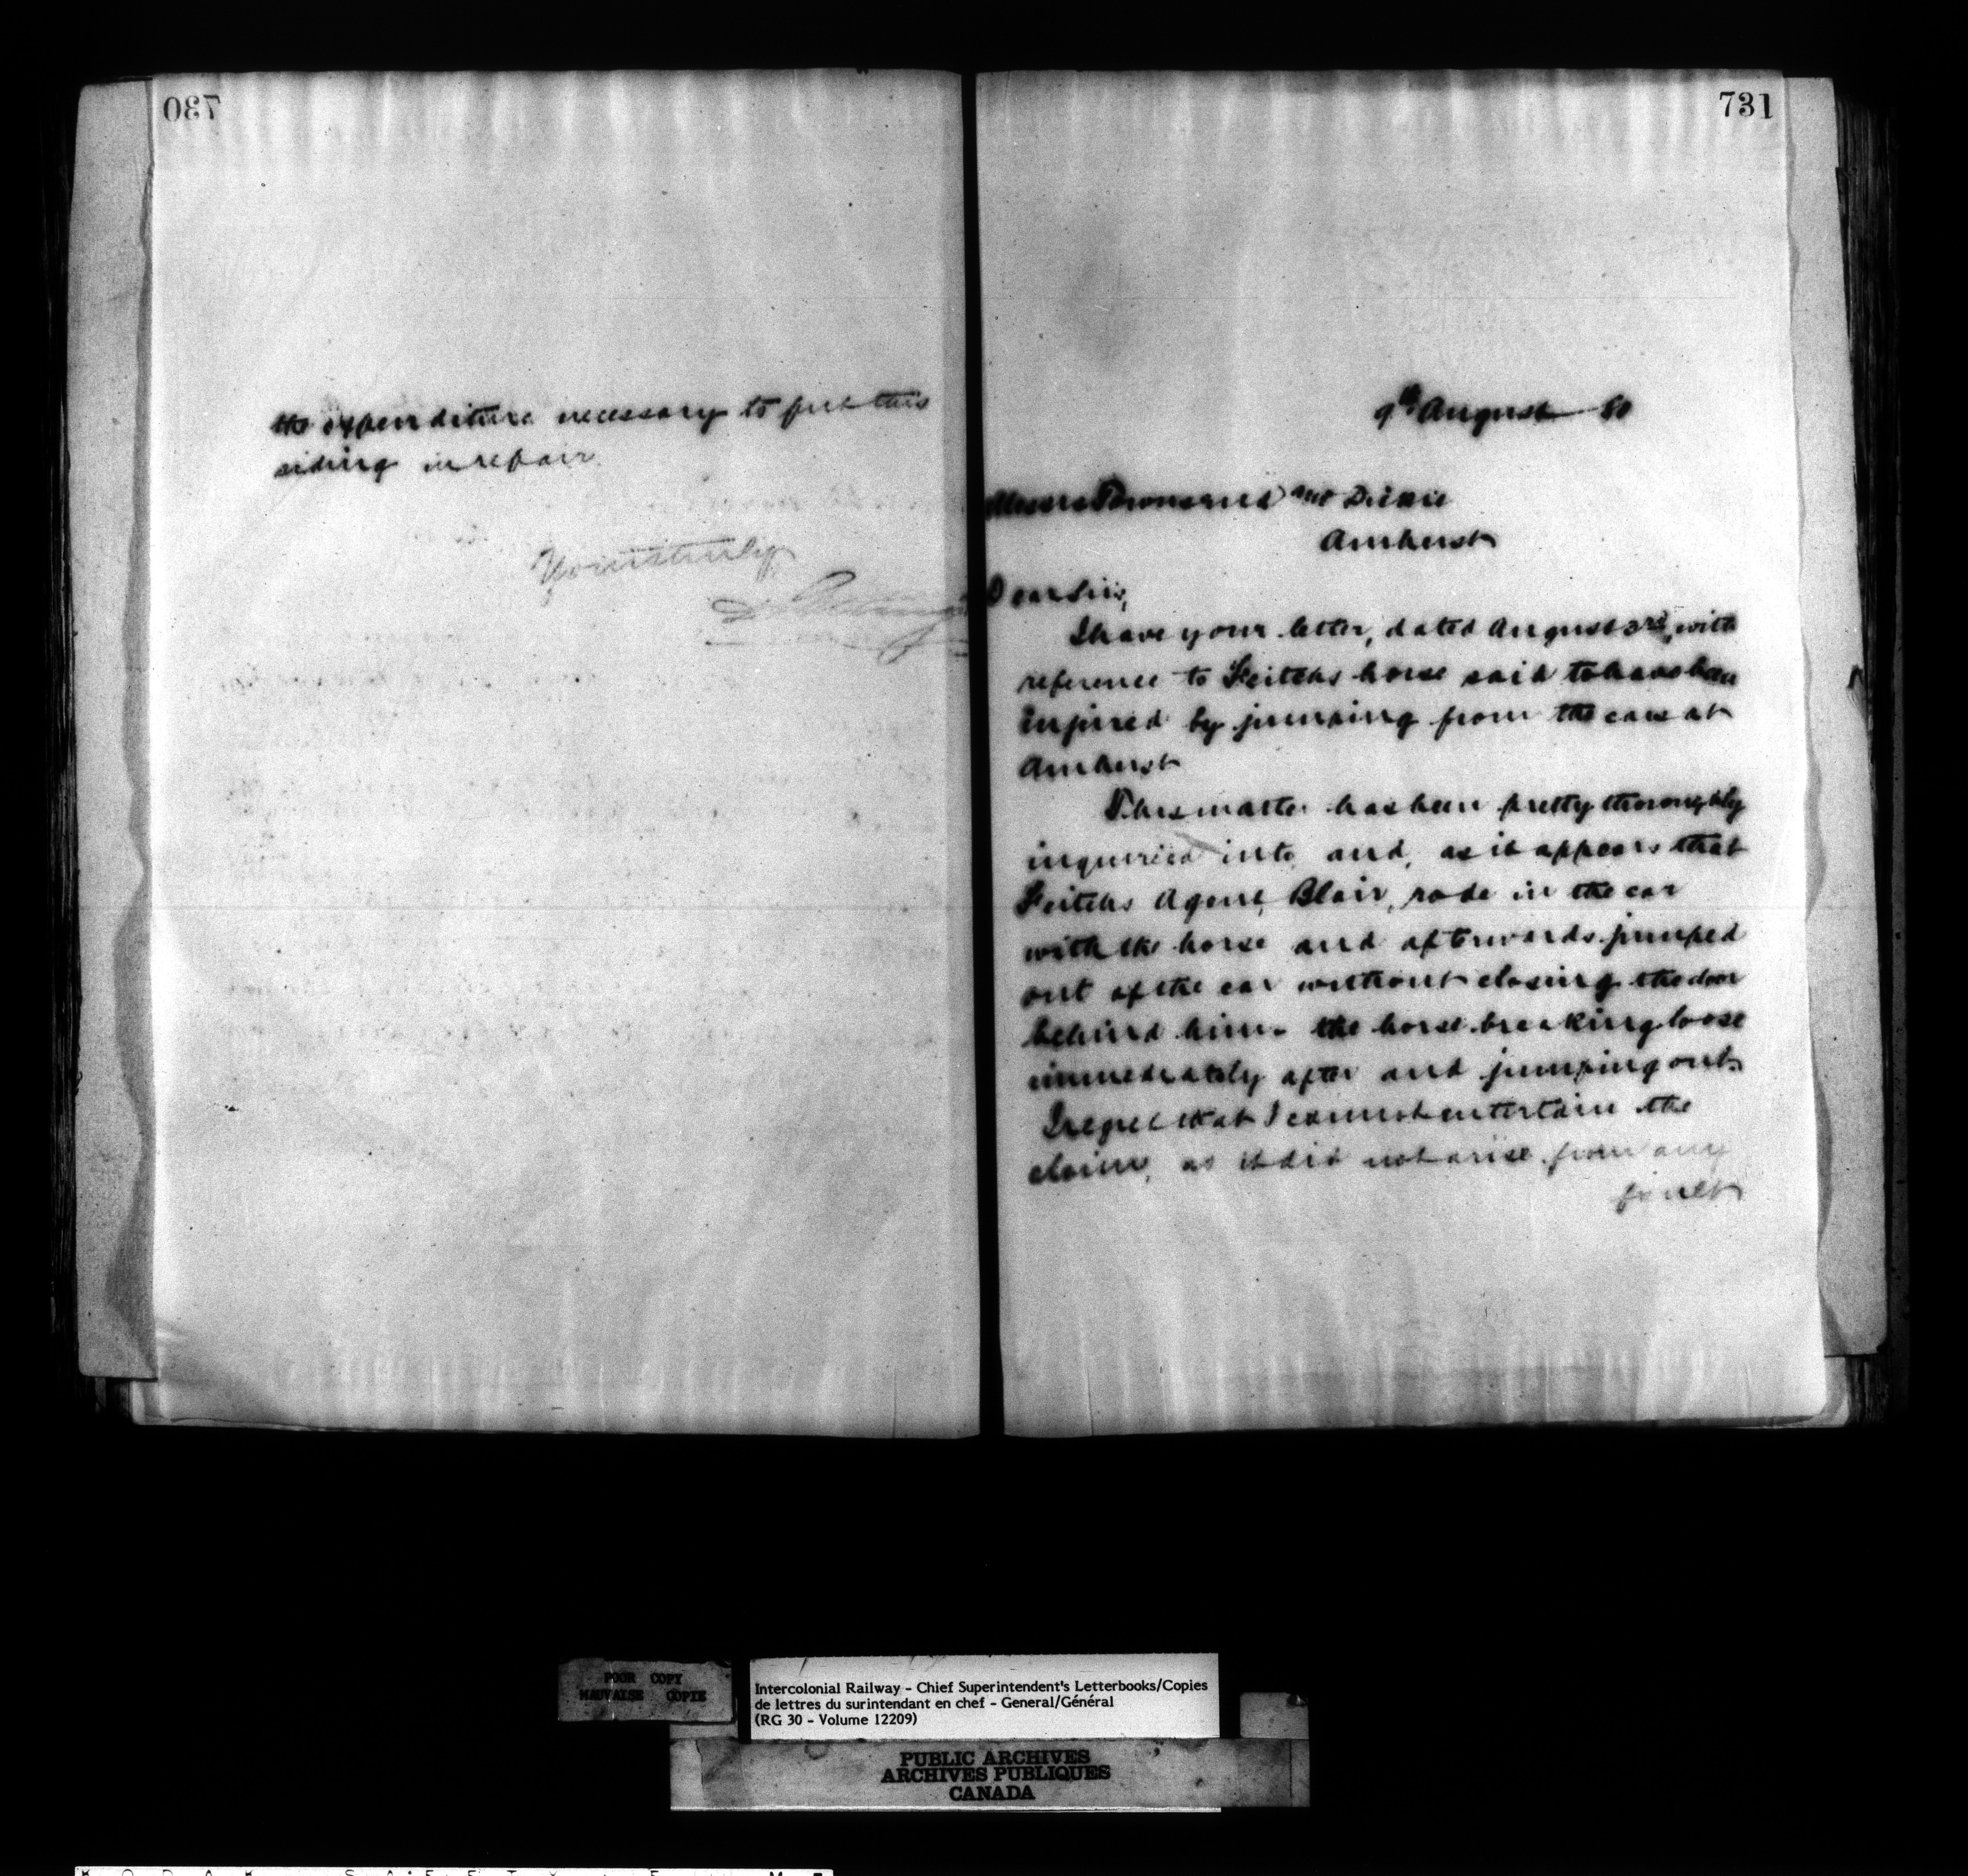 730
the expenditure necessary to put this
siding in repair
Yours truly
731
9th August 80
Messrs Townsend and Dickie
Amherst
Dear Sirs,
I have your letter, dated August 3rd, with
reference to Feitchs horse said to have been
injured by jumping from the cars at
Amherst
This matter has been pretty thoroughly
inquired into, and, as it appears that
Feitchs Agent, Blair, rode in the car
with the horse and afterwards jumped
out of the car without closing the door
behind him. the horse breaking loose
immediately after and jumping out.
I regret that I cannot entertain the
claim, as it did not arise from any
fault
POOR COPY
MAUVAISE COPIE
Intercolonial Railway - Chief Superintendent's Letterbooks/Copies
de lettres du surintendant en chef - General/Général
(RG 30 - Volume 12209)
PUBLIC ARCHIVES
ARCHIVES PUBLIQUES
CANADA